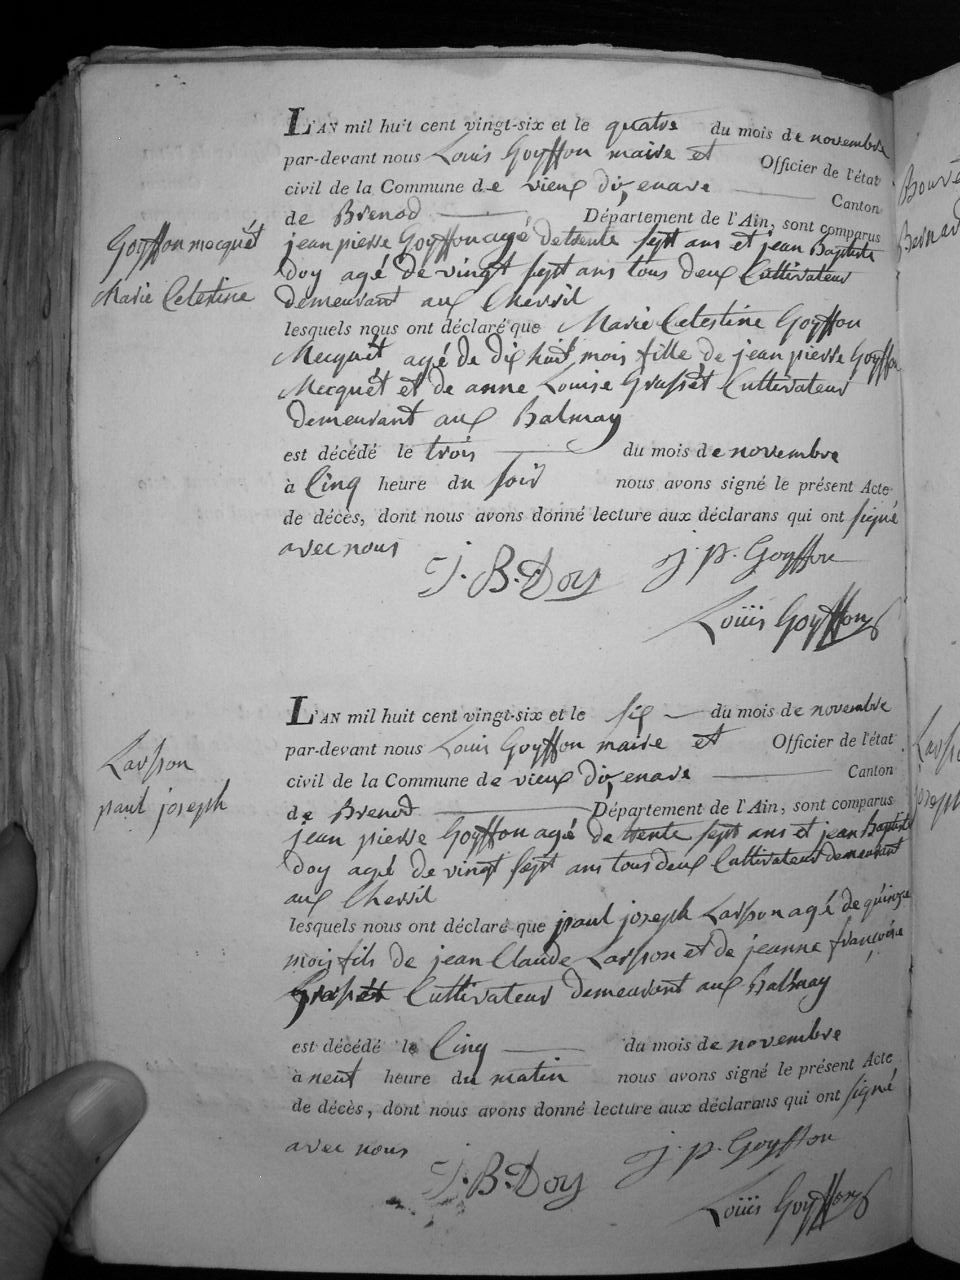 L'AN mil huit cent vingt-six et le quatre du mois de novembre
par-devant nous Louis Goyffon maire et Officier de l'état
civil de la Commune de vieux d'izenave Canton
de Brenod Département de l'Ain, sont comparus
Goyffon mocquét
Marie Celestine
jean pierre Goyffon agé de trente sept ans et jean Baptiste
Doy agé de vingt sept ans tous deux Cultivateur
demeurant aux Chevril
lesquels nous ont déclaré que Marie Celestine Goyffon
Mecquét agé de dix huit mois fille de jean pierre Goyffon
Mecquét et de anne Louise Grassét Cultivateur
demeurant aux Balmay
est décédé le trois du mois de novembre
à Cinq heure du soir nous avons signé le présent Acte
de décès, dont nous avons donné lecture aux déclarans qui ont signé
avec nous
J. B. Doy j. p. Goyffon
Louis Goyffon
L'AN mil huit cent vingt-six et le six du mois de novembre
par-devant nous Louis Goyffon maire et Officier de l'état
civil de la Commune de vieux d'izenave Canton
de Brenod Département de l'Ain, sont comparus
Larsson
paul joseph
jean pierre Goyffon agé de trente sept ans et jean Baptiste
Doy agé de vingt sept ans tous deux Cultivateur demeurant
aux Chevril
lesquels nous ont déclaré que paul joseph Larsson agé de quinze
mois fils de jean Claude Larsson et de jeanne françoise
Grassét Cultivateur demeurant aux Balmay
est décédé le Cinq du mois de novembre
à neuf heure du matin nous avons signé le présent Acte
de décès, dont nous avons donné lecture aux déclarans qui ont signé
avec nous
J. B. Doy j. p. Goyffon
Louis Goyffon